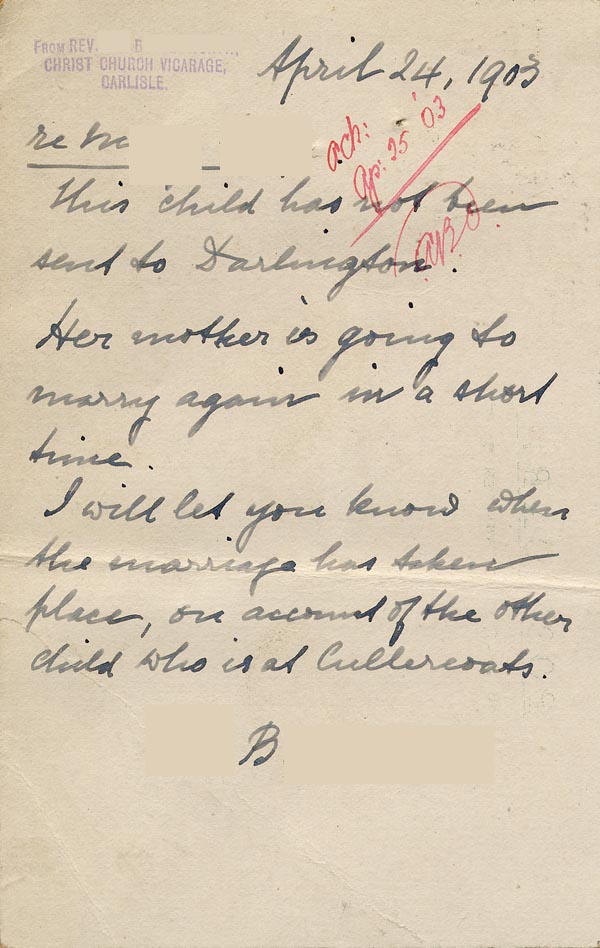 FROM REV. B
CHRIST CHURCH VICARAGE,
CARLISLE.
April 24, 1903
re M
ack:
Ap: 25 '03
This child has not been
sent to Darlington.
Her mother is going to
marry again in a short
time.
I will let you know when
the marriage has taken
place, on account of the other
child who is at Cullercoats.
B